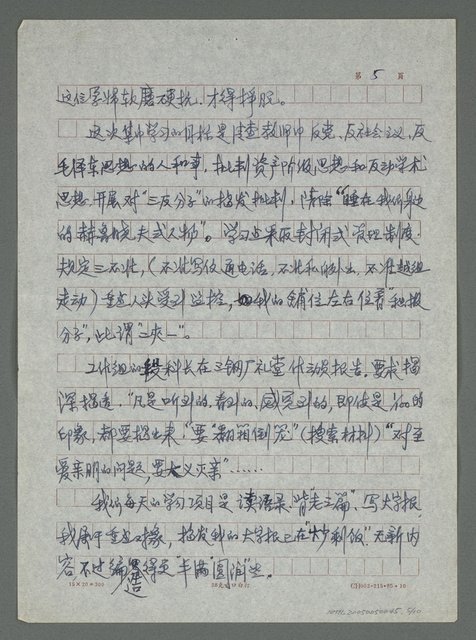 第 5 頁
这位厚师软磨硬抗，才得挣脱。
这次集中学习的目标是清查教师中反党、反社会主义、反
毛泽东思想的人和事，批判资产阶级思想和反动学术
思想，开展对“三反分子”的揭发批判，清除“睡在我们身边
的赫鲁晓夫式人物”。学习班采取封闭式管理制度，
规定三不准，（不准写信通电话，不准私自外出，不准越组
走动）重点人头受到监控，如我的铺位左右住着“积极
分子”，此谓“二夹一”。
工作组的段科长在三钢厂礼堂作动员报告，要求揭
深揭透，“凡是听到的、看到的、感觉到的，即使是1/100的
印象，都要揭出来，“要“翻箱倒笼”（搜索材料）“对至
爱亲朋的问题，要大义灭亲”……
我们每天的学习项目是读语录、背“老三篇”、写大字报，
我属于重点对象，揭发我的大字报上在“炒剩饭”无新内
容不过编造得更“丰满”“圆滑”些。
15×20=300
NMTL20050050045 5/10